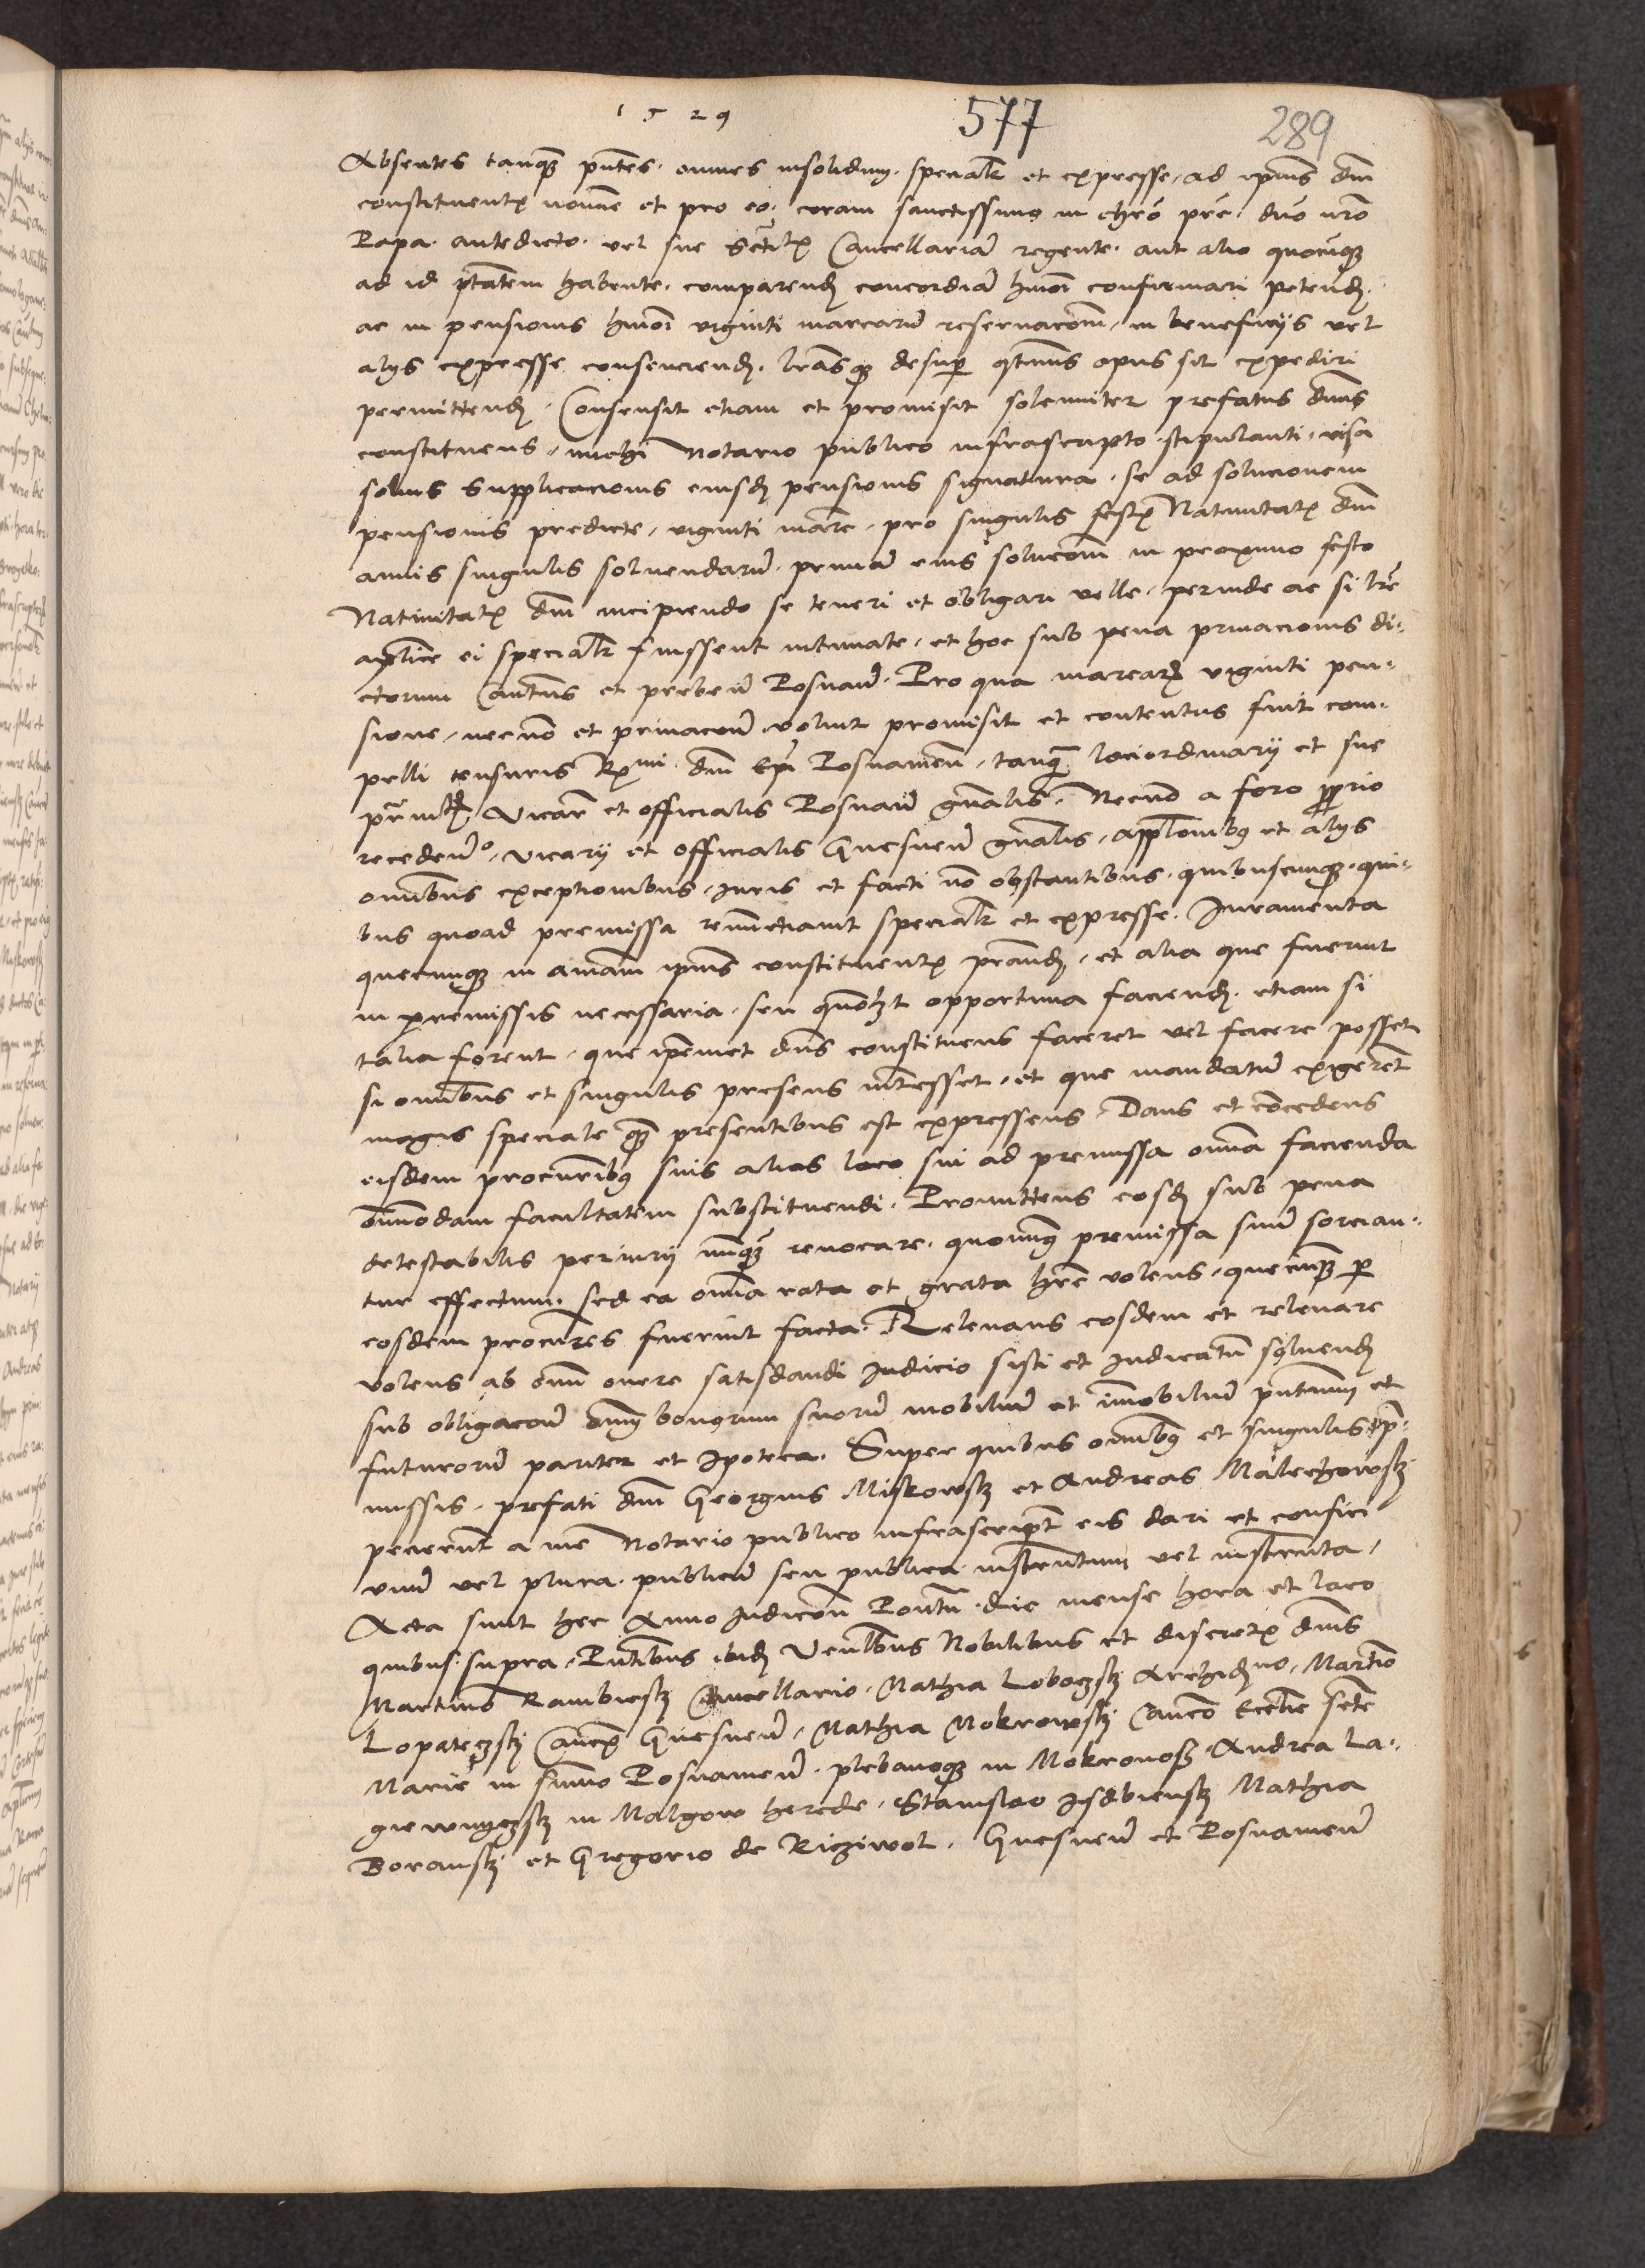 1529
577
289
Absentes tanq̃ pñtes. omnes insolidum. specialr et expresse, ad ipsius dñi
constituentis noĩe et pro eo, coram sanctissimo in chro pre. dño nro
Papa. antedicto. vel sue Sctitis Cancellariã regente. aut alio quocũqz
ad id ptatem habente. comparendũ concordiã hmõi confirmari petendũ.
ac in pensionis hmõi viginti marcarũ reseruacõem, in beneficijs vel
alijs expresse consenciendũ. lrasqz desuper qtenus opus sit expediri
permittendũ. Consensit etiam et promisit solenniter prefatus dñus
constituens, michi Notario publico infrascripto. stipulanti, visa
solius supplicacionis eiusdẽ pensionis signatura. se ad solucionem
pensionis predicte, viginti marc. pro singulis festis Natiuitatis dñi
annis singulis soluendarũ. primã eius solucõem in proximo festo
Natiuitatis dñi incipiendo se teneri et obligari velle, perinde ac si lre
aplice ei specialr fuissent intimate, et hoc sub pena priuacionis di-
ctorum Cantus et prebeñ Posnañ. Pro qua marcarũ viginti pen-
sione, necnõ et priuacõe voluit promisit et contentus fuit com-
pelli censuris Rmi dñi Epi Posnanieñ, tanq̃ lociordinarij et sue
Vicarij et officialis Posnañ gñalis. Necnõ a foro proprio
recedeñ, vicarij et officialis Gnesneñ gñalis, applonibus et alijs
omnibus exceptionibus, iuris et facti nõ obstantibus. quibuscunqz. qui-
bus quoad premissa renũctiauit specialr et expresse. Iuramenta
quecunqz in aĩam ipsius constituentis prestandũ, et alia que fuerint
in premissis necessaria. seu quõlzt opportuna faciendũ. etiam si
talia forent, que ipemet dñs constituens faceret vel facere posset
si omnibus et singulis presens interesset, et que mandatũ exigerẽt
magis speciale q̃ presentibus est expressens. Dans et cõcedens
eisdem procurribus suis alios loco sui ad premissa omnia facienda
oĩmodam facultatem substituendi. Promittens eosdẽ sub pena
detestabilis periurij nũq̃ reuocare. quominus premissa suũ sorcian-
tur effectum. sed ea omnia rata et grata hre volens, quecunqz per
eosdem procurres fuerint facta. Releuans eosdem et releuare
volens ab omni onere satisdandi Iudicio sisti et Iudicatũ soluendũ
sub obligacõe oĩm bonorum suorũ mobiliũ et ĩmobiliũ pñtium et
futurorũ pariter et Ipoteca. Super quibus omnibus et singulis pre-
missis. prefati dñi Georgius Miskowskj et Andreas Malechowskj
pecierũt a me Notario publico infrascripto eis dari et confici
vnũ vel plura. publicũ seu publica instrũtum vel instrũta,
Acta sunt hec Anno Indicõe Pontũ. die mense hora et loco
quibus. supra. Pñtibus ibidẽ Venlibus Nobilibus et discretis dñis
Martino Rambieskj Cancellario. Mathia Loboczskj Archidno, Martino
Lopateczskj Canco Gnesneñ, Mathia Mokrowskj Canco Ecclie Scte
Marie in sũmo Posnanieñ. plebanoqz in Mokronosz. Andrea La-
giewniczskj in Malgow herede. Stanislao Isdbienskj Mathia
Boranskj et Gregorio de Riczywol. Gnesneñ et Posnanieñ